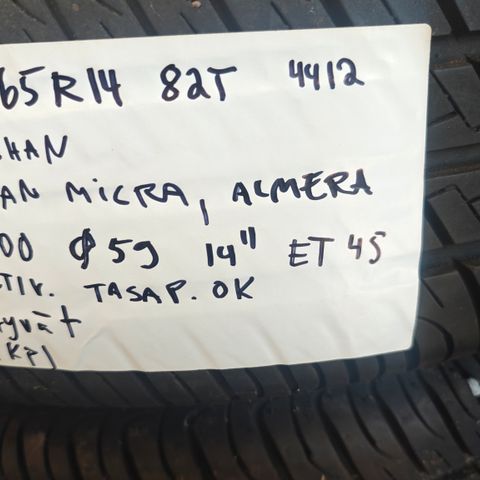 65R14 82T 4412
HAN
AN MICRA, ALMERA
00 Ø 59 14" ET 45
TIV. TASAP. OK
yvät
KPL